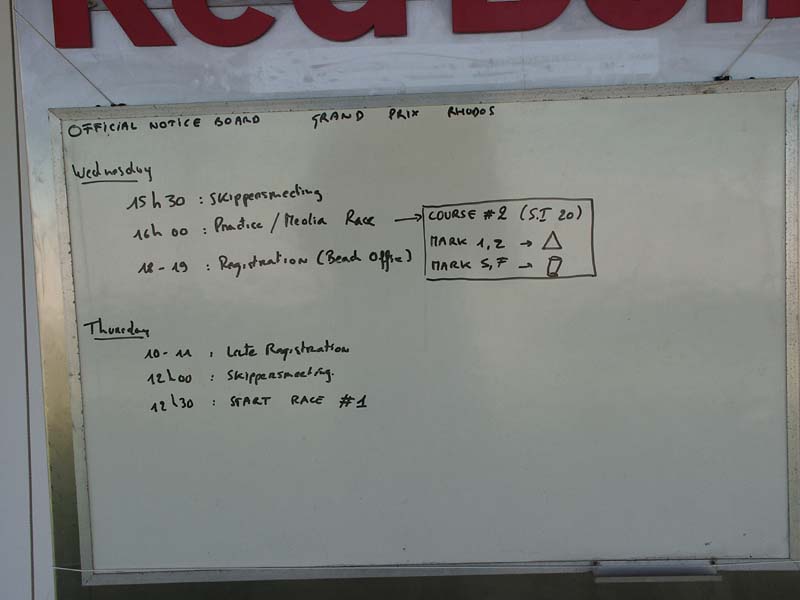 Red Bull
OFFICIAL NOTICE BOARD GRAND PRIX RHODOS
Wednesday
15h30 : Skippersmeeting
16h00 : Practice / Media Race → COURSE #2 (S.I 20)
MARK 1,2 → △
18-19 : Registration (Beach Office)
MARK S,F →
Thursday
10-11 : Late Registration
12h00 : Skippersmeeting.
12h30 : START RACE #1